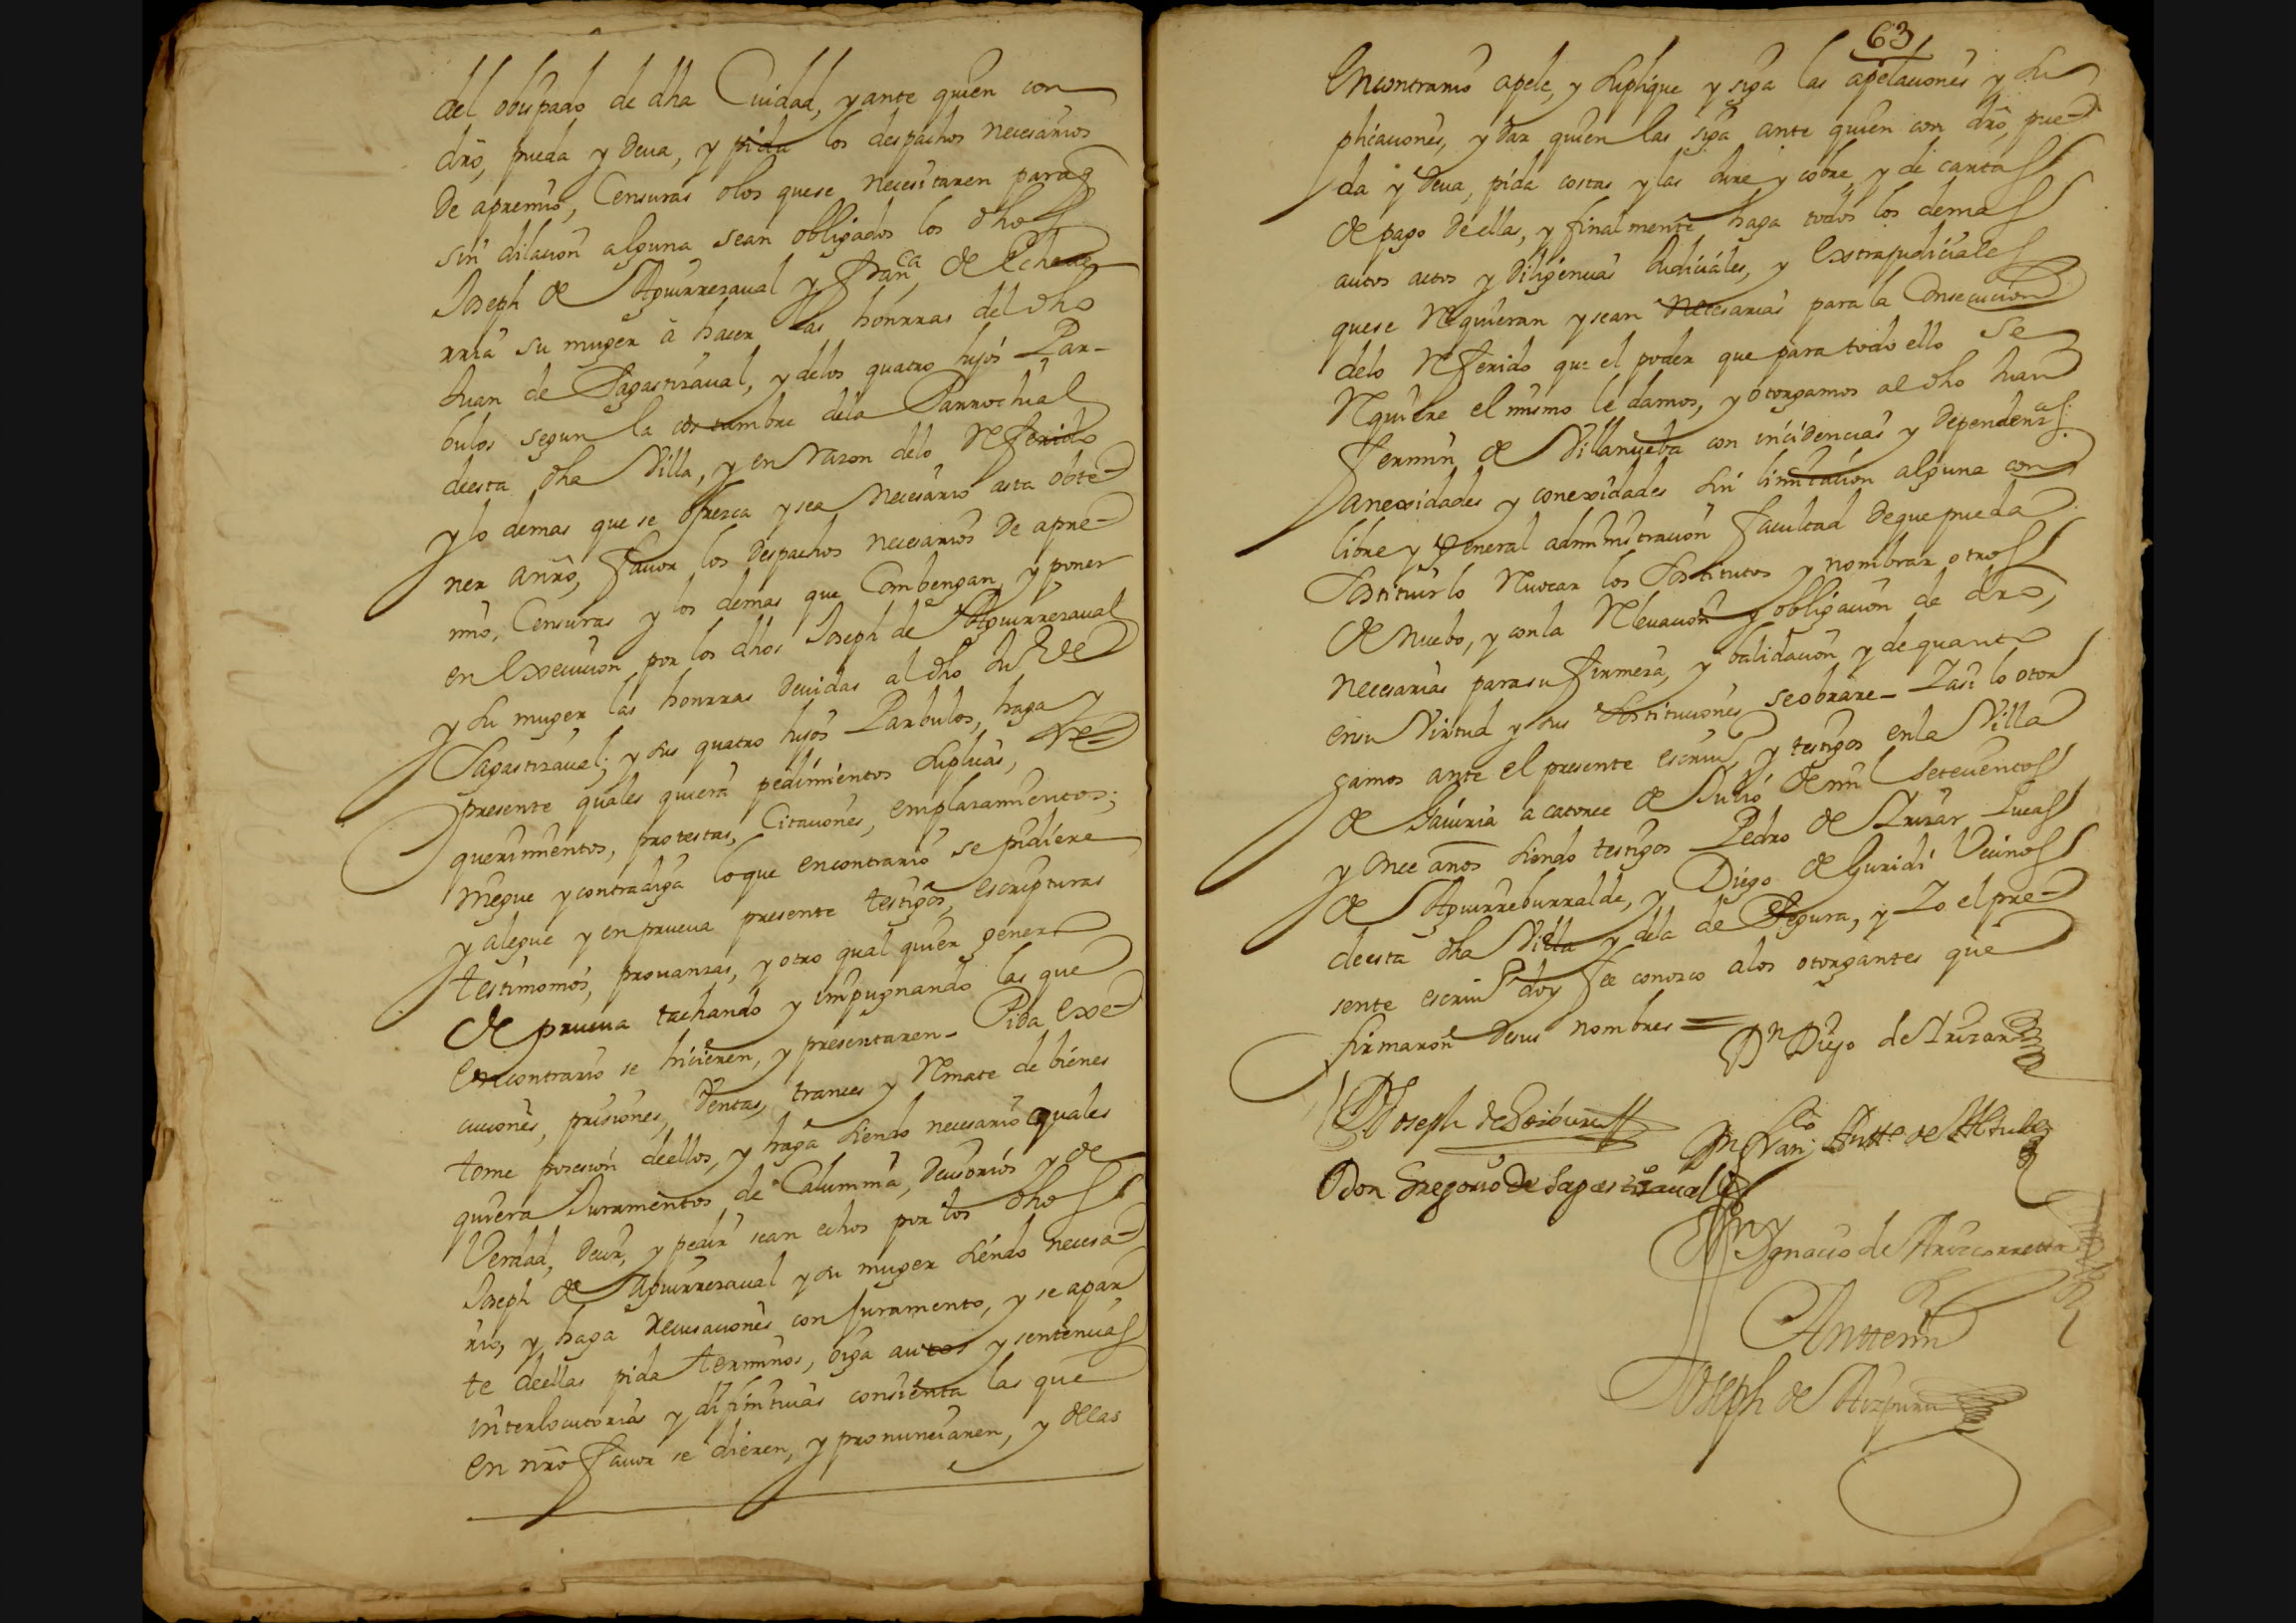 del obispado de dha Ciudad, y ante quien con
dr̃o, pueda y Deua, y pida los despachos necesarios
De apremio, Censuras o los que se necesitaren para q̃
sin dilacion alguna sean obligados los dhos
Joseph de Aguirresaual y Fran.ca de Echeuer
rria su muger â hacer las honrras del dho
Juan de Sagastisaual, y delos quatro hijos Par-
bulos segun la costumbre dela Parrochial
deesta dha Villa, y en Razon delo Referido
y lo demas que se ofresca y sea Necesario asta obte-
ner anr̃o, fauor los Despachos necesarios De apre-
mio, Censuras y los demas que Combengan, y poner
en Execucion por los dhos Joseph de Aguirresaual
y su muger las honrras Deuidas al dho Ju.º de
Sagastisaual; y sus quatro hijos Parbulos, haga y
presente quales quiera pedimientos suplicas, Re-
querimientos, protestas, Citaciones, emplasamientos;
niegue y contradiga lo que encontrario se pidiere
y alegue y en prueua presente testigos, escripturas
testimonios, prouansas, y otro qual quier genero
de prueua tachando y impugnando las que
Encontrario se hicieren, y presentaren- Pida exe-
cuciones, prisiones, Ventas, trances y Remate de bienes
tome posesion deellos, y haga siendo necesario quales
quiera Juramentos de Calumnia, Decisorios y de
Verdad, Decir, y pedir sean echos por los dhos
Joseph de Aguirresaual y su muger siendo necesa-
rio, y haga Recusaciones con juramento, y se apar
te deellas pida terminos, oiga autos y sentencias
interlocutorias y difinitiuas consienta las que
en nr̃o fauor se dieren, y pronunciaren, y delas
63
Encontrario apele, y suplique y siga las apelaciones y su
plicaciones, y Dar quien las siga ante quien con dr̃o, pue-
da y Deua, pida costas y las Jure y cobre, y de cartas
de pago Deellas, y finalmente haga todos los demas
autos actos y Diligencias Judiciales, y Extrajudiciales
que se Requieran y sean Necesarias para la Consecucion
delo Referido que el poder que para todo ello se
Requiere el mismo le damos, y otorgamos al dho Juan
Fermin de Villanueba con incidencias y Dependen.as
anexidades y conexidades sin limitacion alguna con
libre y General administracion facultad Deque pueda
Sostituirlo Reuocar los Sostitutos y nombrar otros
de nuebo, y con la Releuacion y obligacion de dr̃o,
necesarias para su firmesa, y balidacion y de quanto
en su Virtud y sus Sostituciones se obrare- Y asi lo otor
gamos ante el presente escriu.º y testigos en la Villa
de Sauiria a catorce de Julio de mil setecientos
y once años siendo testigos Pedro de Yrizar Lucas
de Aguirreburralde, y Diego de Guridi Vecinos
deesta dha Villa y dela de Segura, y Yo el pre-
sente escriu.º doy fee conosco alos otorgantes que
firmaron Desus nombres =
Dn Diego de Yrizar
Joseph de
Dn Fran.co Antt.º de Altube
Don Gregorio de Sagastisaual
Ygnacio de
Antte mi
Joseph de Aizpuru